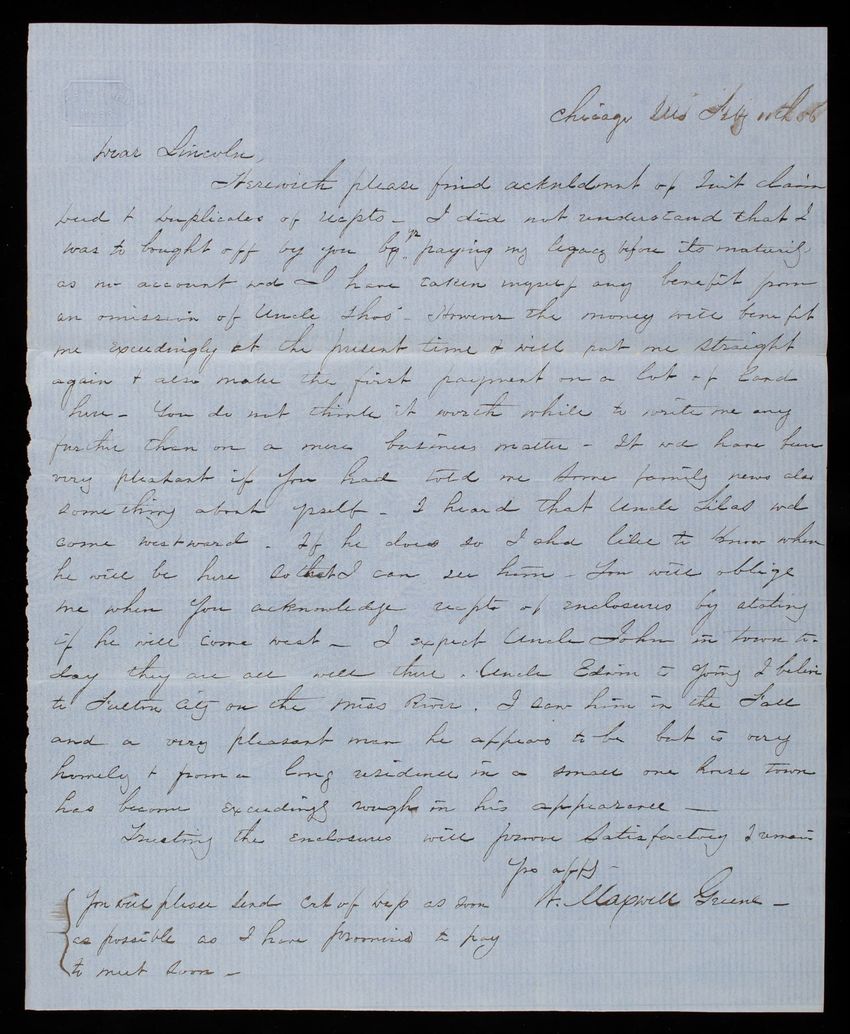 Chicago Ills Feby 11th 56
Dear Lincoln,
Herewith please find acknldgmnt of Quit claim
deed & duplicates of recpts - I did not understand that I
was to bought off by you by yr paying my legacy before its maturity
as no account wd I have taken myself any benefit from
an omission of Uncle Thos' - However the money will benefit
me exceedingly at the present time & will put me straight
again & also make the first payment on a lot of land
here - You do not think it worth while to write me any
further than on a mere business matter - It wd have been
very pleasant if you had told me some family news also
something about yrself - I heard that Uncle Silas wd
come westward - If he does so I shd like to know when
he will be here so that I can see him - You will oblige
me when you acknowledge recpts of enclosures by stating
if he will come west - I expect Uncle John in town to-
day they are all well there. Uncle Edwin is going I believe
to Fulton City on the Miss River. I saw him in the Fall
and a very pleasant man he appears to be but is very
homely & from a long residence in a small one horse town
has become exceedingly rough in his appearance -
Trusting the enclosures will proove satisfactory I remain
Yrs affy -
W. Maxwell Greene -
You will please send crt of dep as soon
as possible as I have promised to pay
to meet soon -